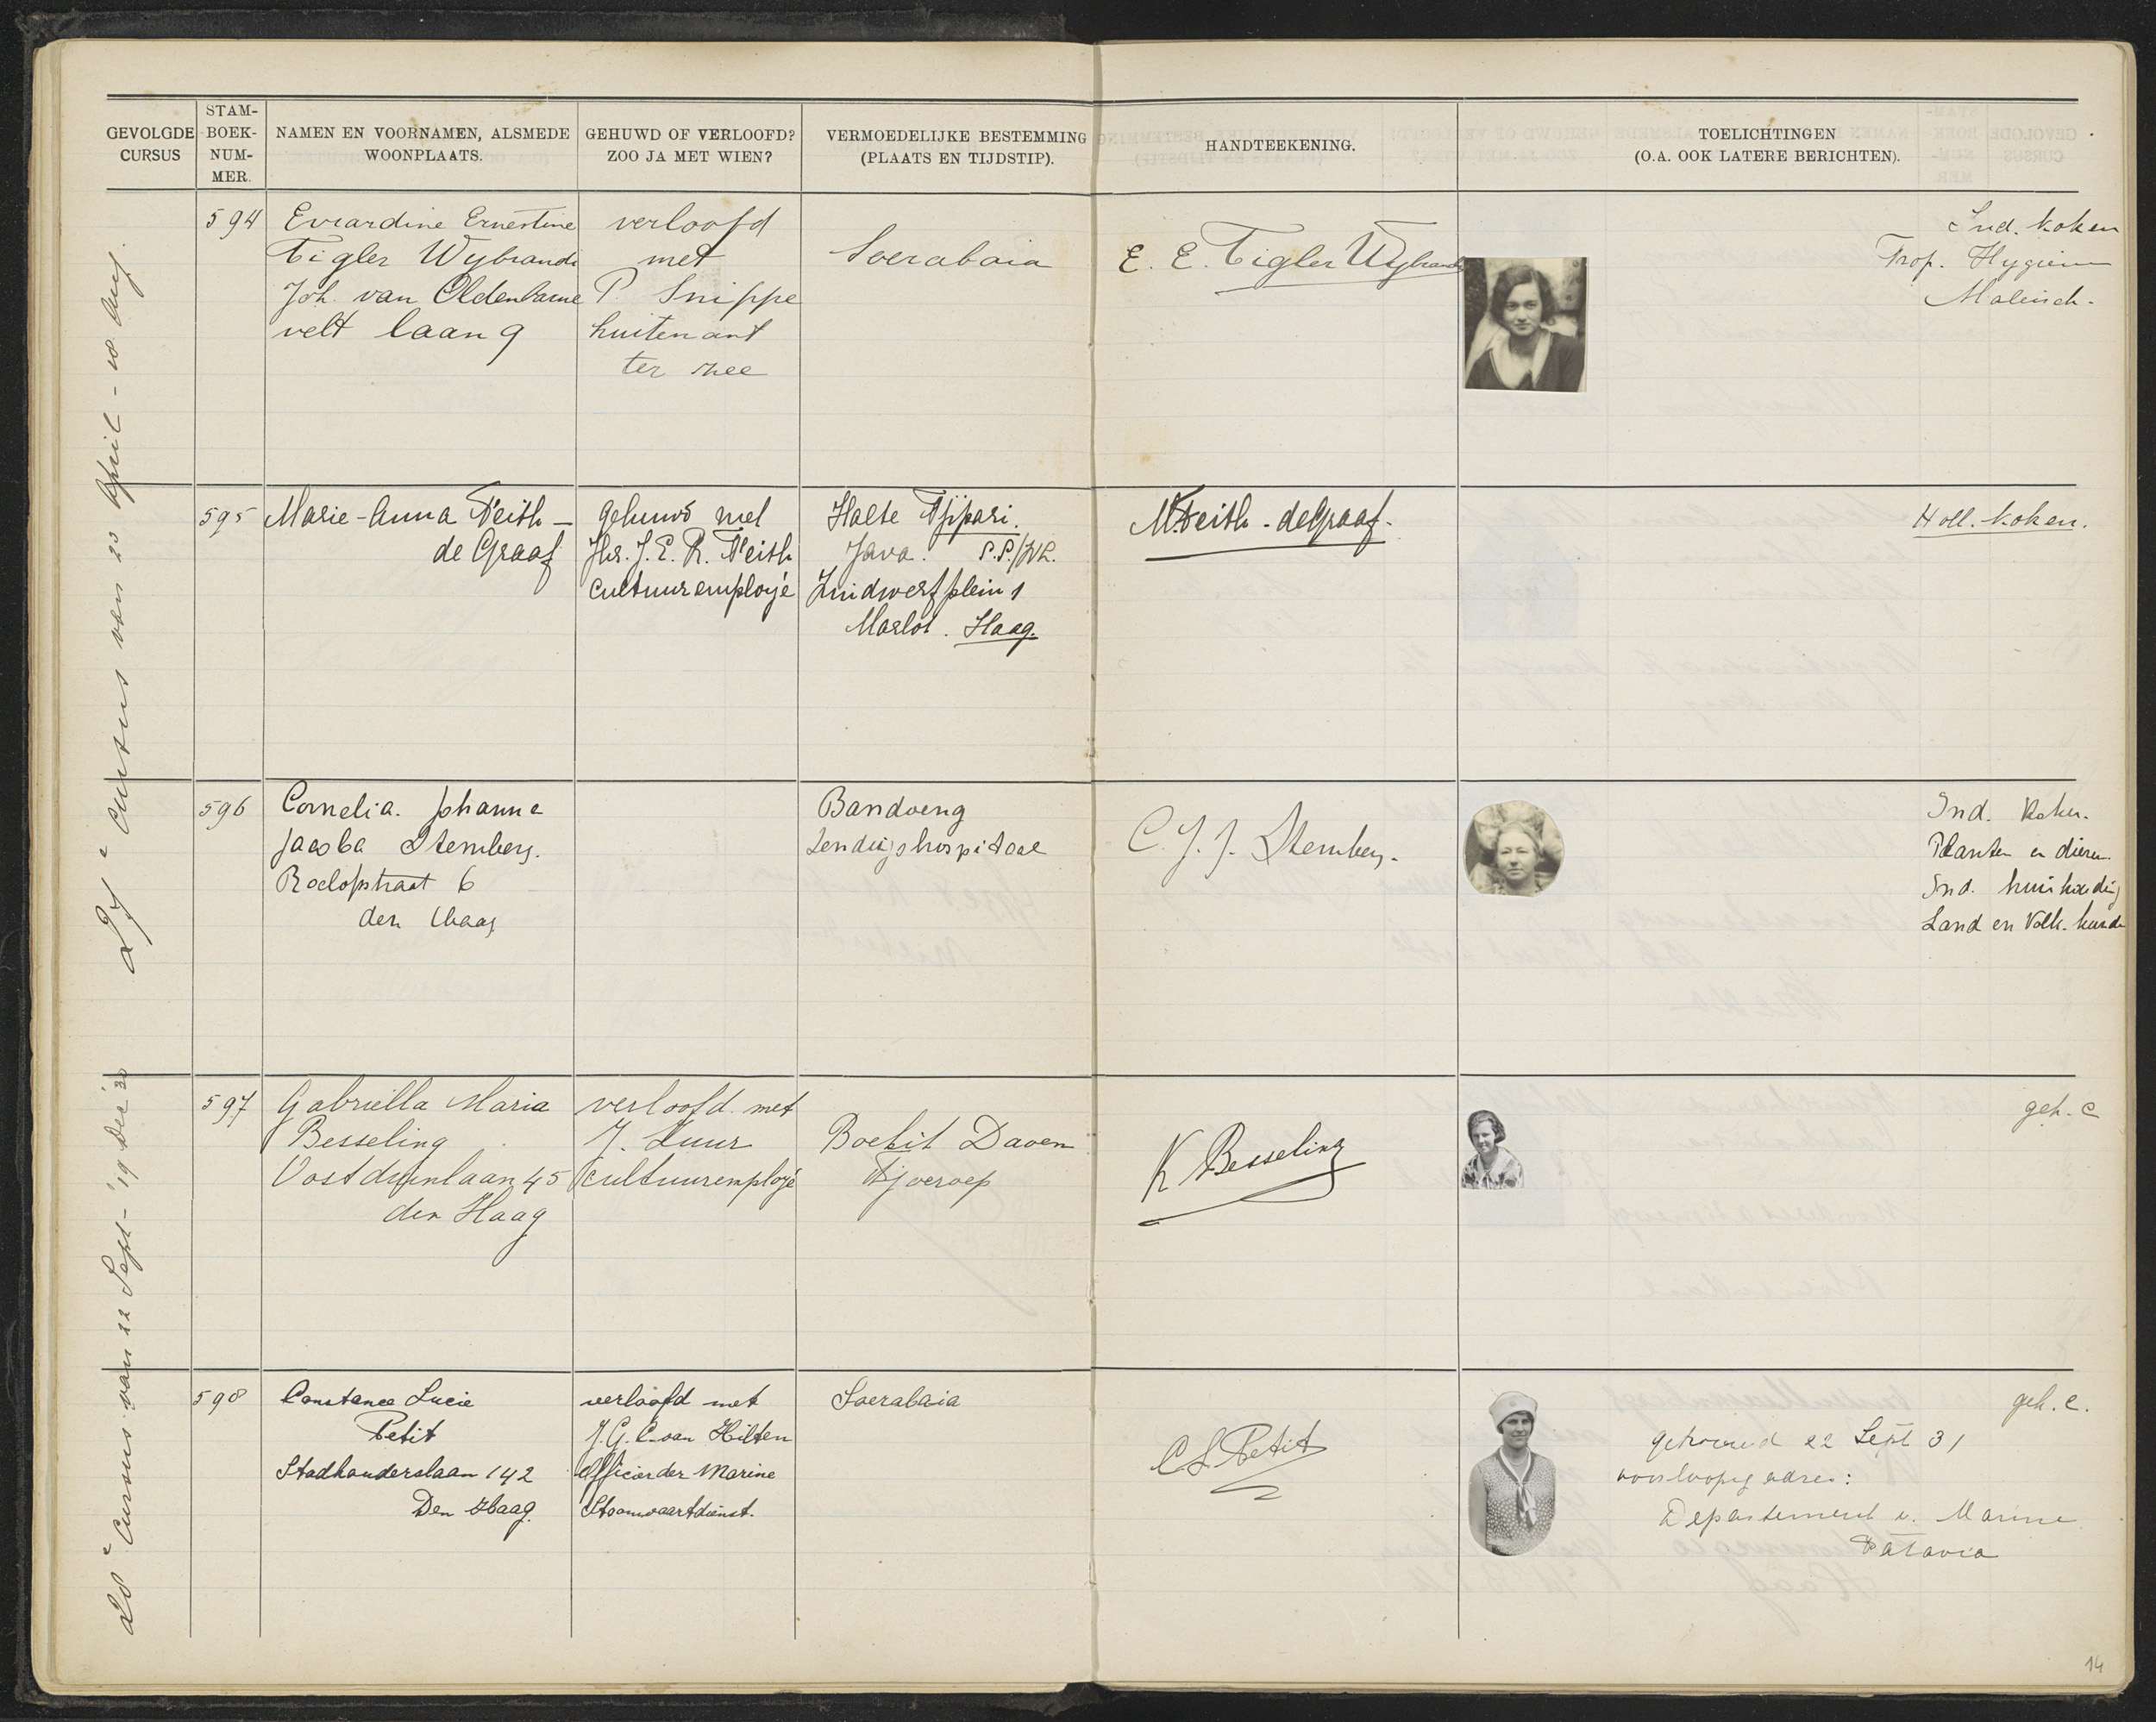 GEVOLGDE
CURSUS
STAM-
BOEK-
NUM-
MER.
NAMEN EN VOORNAMEN, ALSMEDE
WOONPLAATS.
GEHUWD OF VERLOOFD?
ZOO JA MET WIEN?
VERMOEDELIJKE BESTEMMING
(PLAATS EN TIJDSTIP).
HANDTEEKENING.
TOELICHTINGEN
(O.A. OOK LATERE BERICHTEN).
27e Cursus van 23 April - 10 Aug.
594
Evrardine Ernestine
Tigler Wybrandi
Joh. van Oldenbarne
velt laan 9
verloofd
met
P. Snippe
luitenant
ter zee
Soerabaia
E. E. Tigler Wybrandi
Ind. koken
Trop. Hygiene
Maleisch.
595
Marie-Anna Teith -
de Graaf
Gehuwd met
Jhr. J. E. R. Teith
cultuuremployé
Halte Tjipari.
Java. S.S./W.L.
Zuidwerfplein 1
Marlot. Haag.
M. Teith - de Graaf.
Holl. koken.
596
Cornelia. Johanna
Jacoba Stemberg.
Roelofstraat 6
den Haag
Bandoeng
Zendingshospitaal
C. J. J. Stemberg.
Ind. koken.
Planten en dieren.
Ind. huishouding
Land en Volk. kunde
28e Cursus van 22 Sept - 19 Dec '30
597
Gabriella Maria
Besseling
Oostduinlaan 45
den Haag
verloofd met
J. Luur
cultuuremployé
Boekit Daoen
Tjoeroep
K Besseling
geh. C
598
Constance Lucie
Petit
Stadhouderslaan 142
Den Haag.
verloofd met
J. G. C. van Hilten
Officier der Marine
Stoomvaartdienst.
Soerabaia
C L Petit
geh. C.
getrouwd 22 Sept 31
voorloopig adres:
Departement v. Marine
Batavia
14